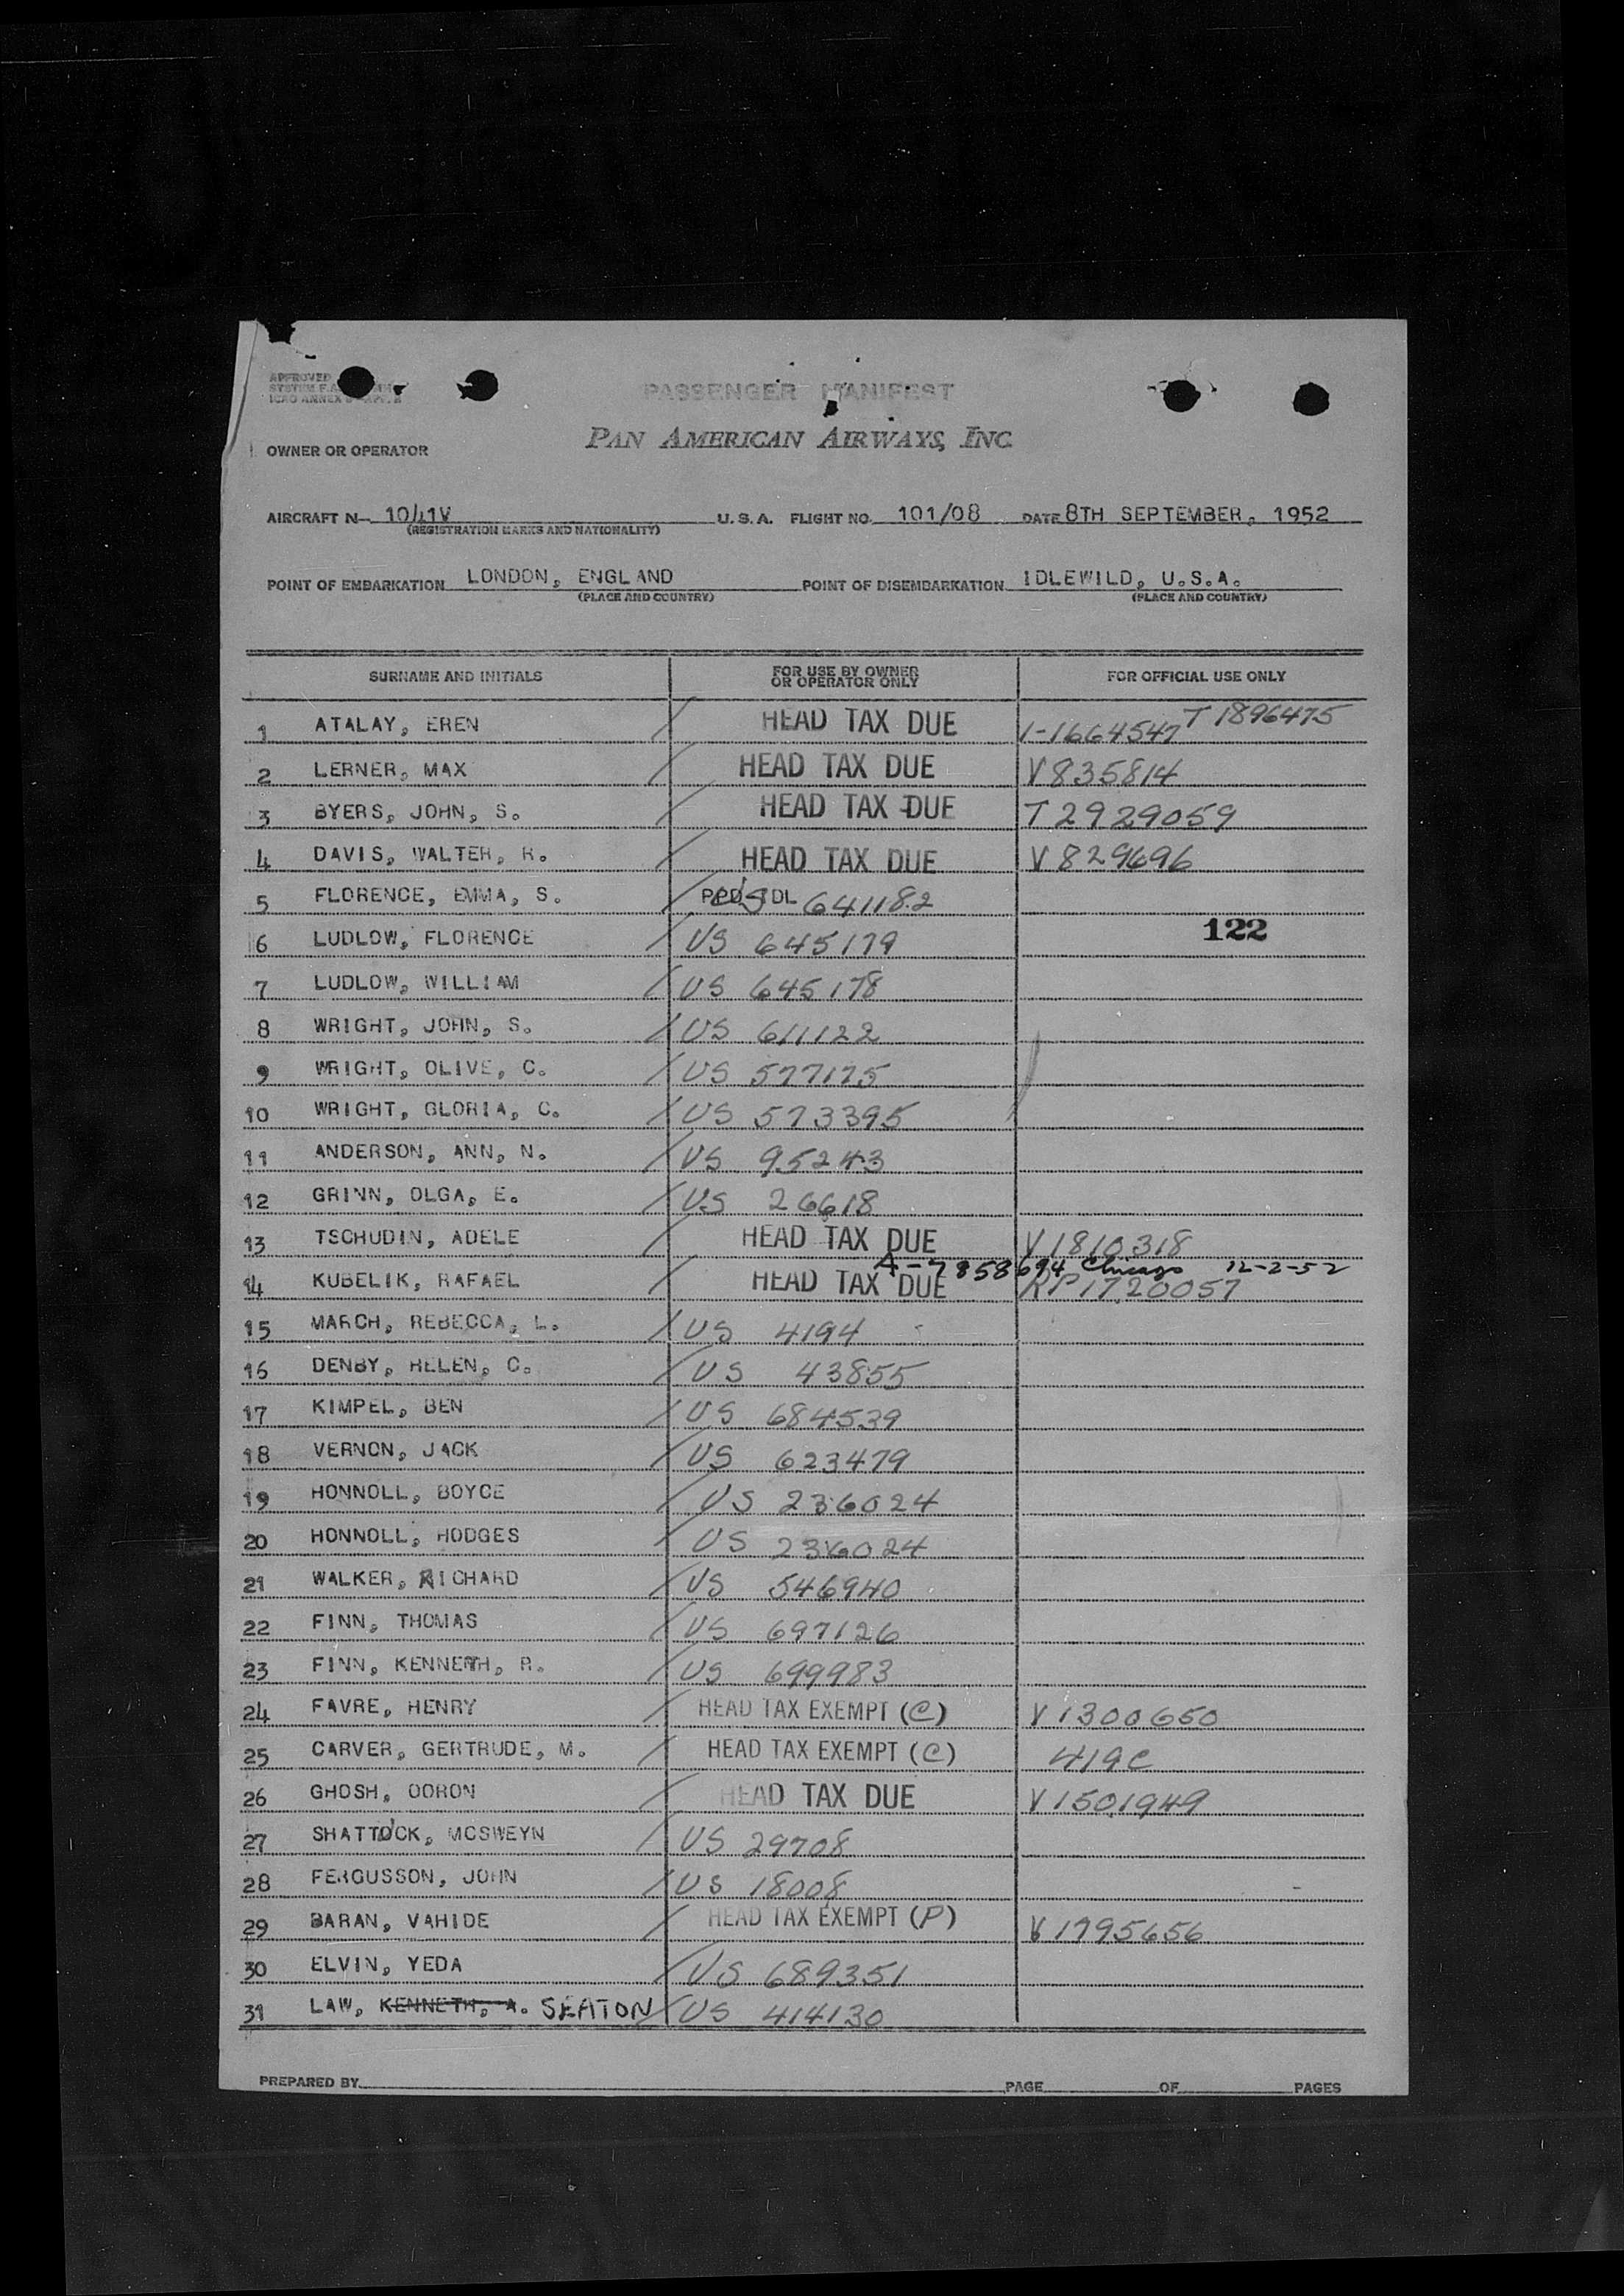 APPROVED
ICAO ANNEX
PASSENGER MANIFEST
PAN AMERICAN AIRWAYS, INC.
OWNER OR OPERATOR
AIRCRAFT N- 1041V U.S.A. FLIGHT NO. 101/08 DATE 8TH SEPTEMBER, 1952
(REGISTRATION MARKS AND NATIONALITY)
POINT OF EMBARKATION LONDON, ENGLAND POINT OF DISEMBARKATION IDLEWILD, U.S.A.
(PLACE AND COUNTRY) (PLACE AND COUNTRY)
SURNAME AND INITIALS FOR USE BY OWNER OR OPERATOR ONLY FOR OFFICIAL USE ONLY
1 ATALAY, EREN / HEAD TAX DUE 1-1664547 T 1896475
2 LERNER, MAX / HEAD TAX DUE V835814
3 BYERS, JOHN, S. / HEAD TAX DUE T2929059
4 DAVIS, WALTER, R. / HEAD TAX DUE V829696
5 FLORENCE, EMMA, S. / US 641182
122
6 LUDLOW, FLORENCE / US 645179
7 LUDLOW, WILLIAM / US 645178
8 WRIGHT, JOHN, S. / US 611122
9 WRIGHT, OLIVE, C. / US 577175
10 WRIGHT, GLORIA, C. / US 573395
11 ANDERSON, ANN, N. / US 95243
12 GRINN, OLGA, E. / US 26618
13 TSCHUDIN, ADELE / HEAD TAX DUE V1810318
A-7858694 Chicago 12-2-52
14 KUBELIK, RAFAEL / HEAD TAX DUE RP1720057
15 MARCH, REBECCA, L. / US 4194
16 DENBY, HELEN, C. / US 43855
17 KIMPEL, BEN / US 684539
18 VERNON, JACK / US 623479
19 HONNOLL, BOYCE / US 236024
20 HONNOLL, HODGES / US 236024
21 WALKER, RICHARD / US 546940
22 FINN, THOMAS / US 697126
23 FINN, KENNETH, R. / US 699983
24 FAVRE, HENRY / HEAD TAX EXEMPT (C) V1300650
25 CARVER, GERTRUDE, M. / HEAD TAX EXEMPT (C) 419C
26 GHOSH, OORON / HEAD TAX DUE V1501949
27 SHATTUCK, MCSWEYN / US 29708
28 FERGUSSON, JOHN / US 18008
29 BARAN, VAHIDE / HEAD TAX EXEMPT (P) V1795656
30 ELVIN, YEDA / US 689351
31 LAW, KENNETH, A. SEATON / US 414130
PREPARED BY PAGE OF PAGES